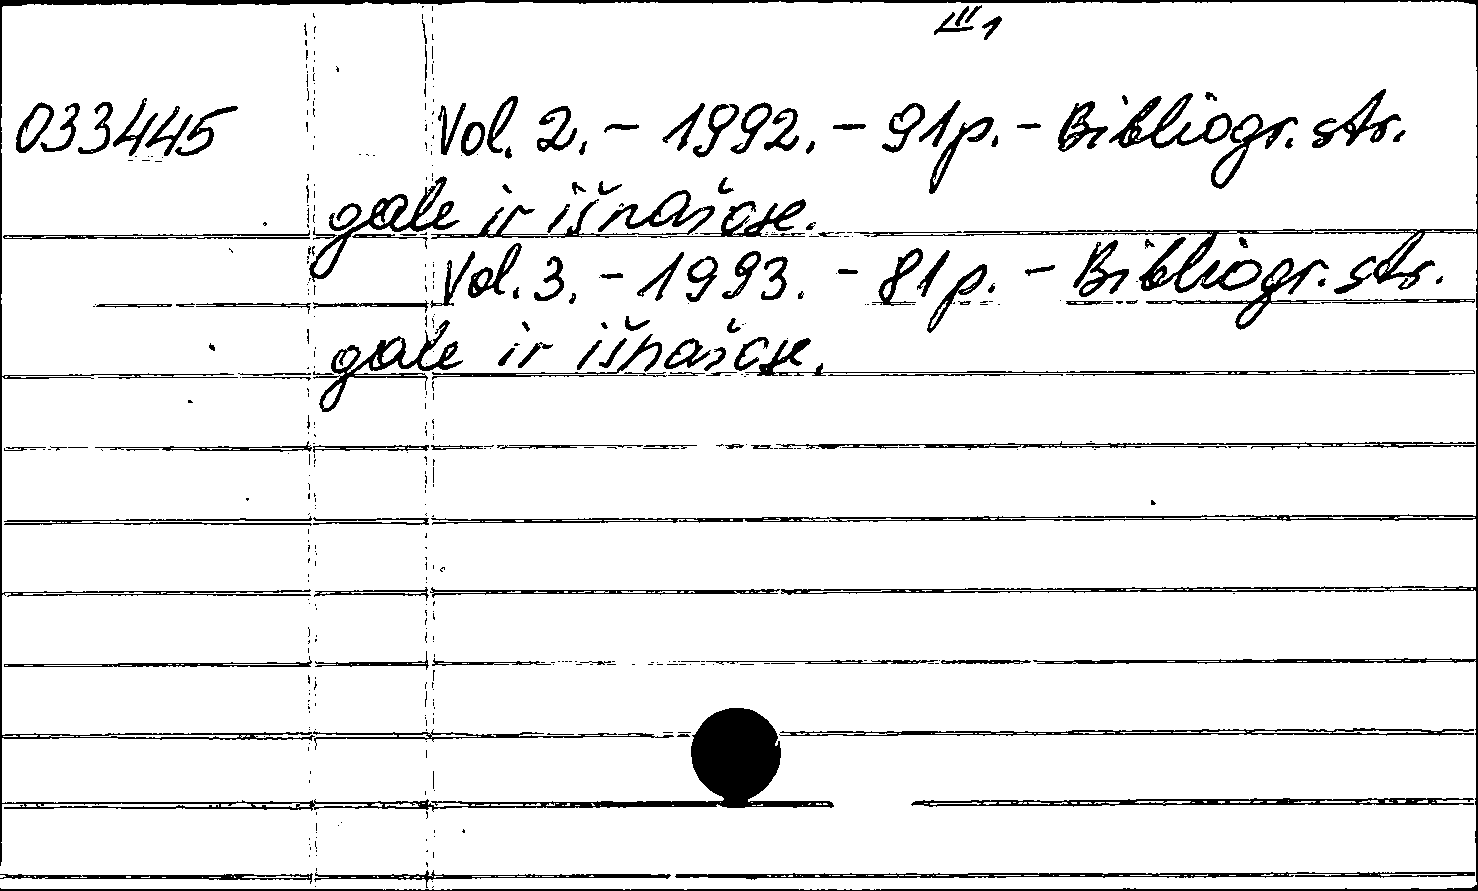 III 1
033445 Vol. 2. - 1992. - 91p. - Bibliogr. str.
gale ir išnašose.
Vol. 3. - 1993. - 81p. - Bibliogr. str.
gale ir išnašose.